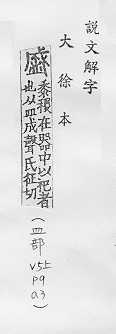 説文解字
大徐本
盛
黍稷在器中以祀者
也从皿成聲氏征切
(皿部 v5上 p9 a3)